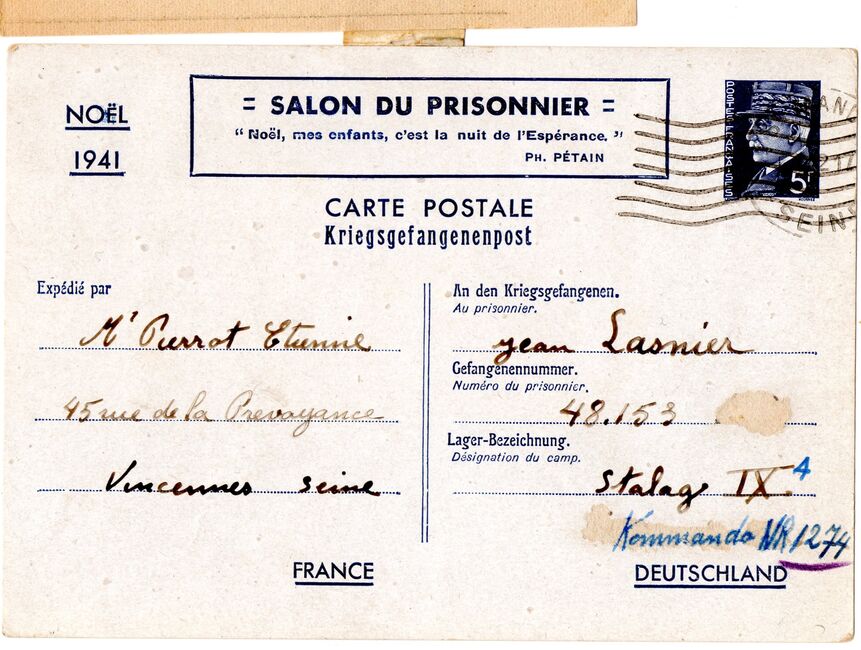 NOËL
1941
= SALON DU PRISONNIER =
“ Noël, mes enfants, c'est la nuit de l'Espérance. ”
PH. PÉTAIN
POSTES FRANÇAISES
5F
SEINE
CARTE POSTALE
Kriegsgefangenenpost
Expédié par
Mr Pierrot Etienne
45 rue de la Prevoyance
Vincennes Seine
FRANCE
An den Kriegsgefangenen.
Au prisonnier.
Jean Lasnier
Gefangenennummer.
Numéro du prisonnier.
48.153
Lager-Bezeichnung.
Désignation du camp.
Stalag IX 4
Kommando NR 1274
DEUTSCHLAND